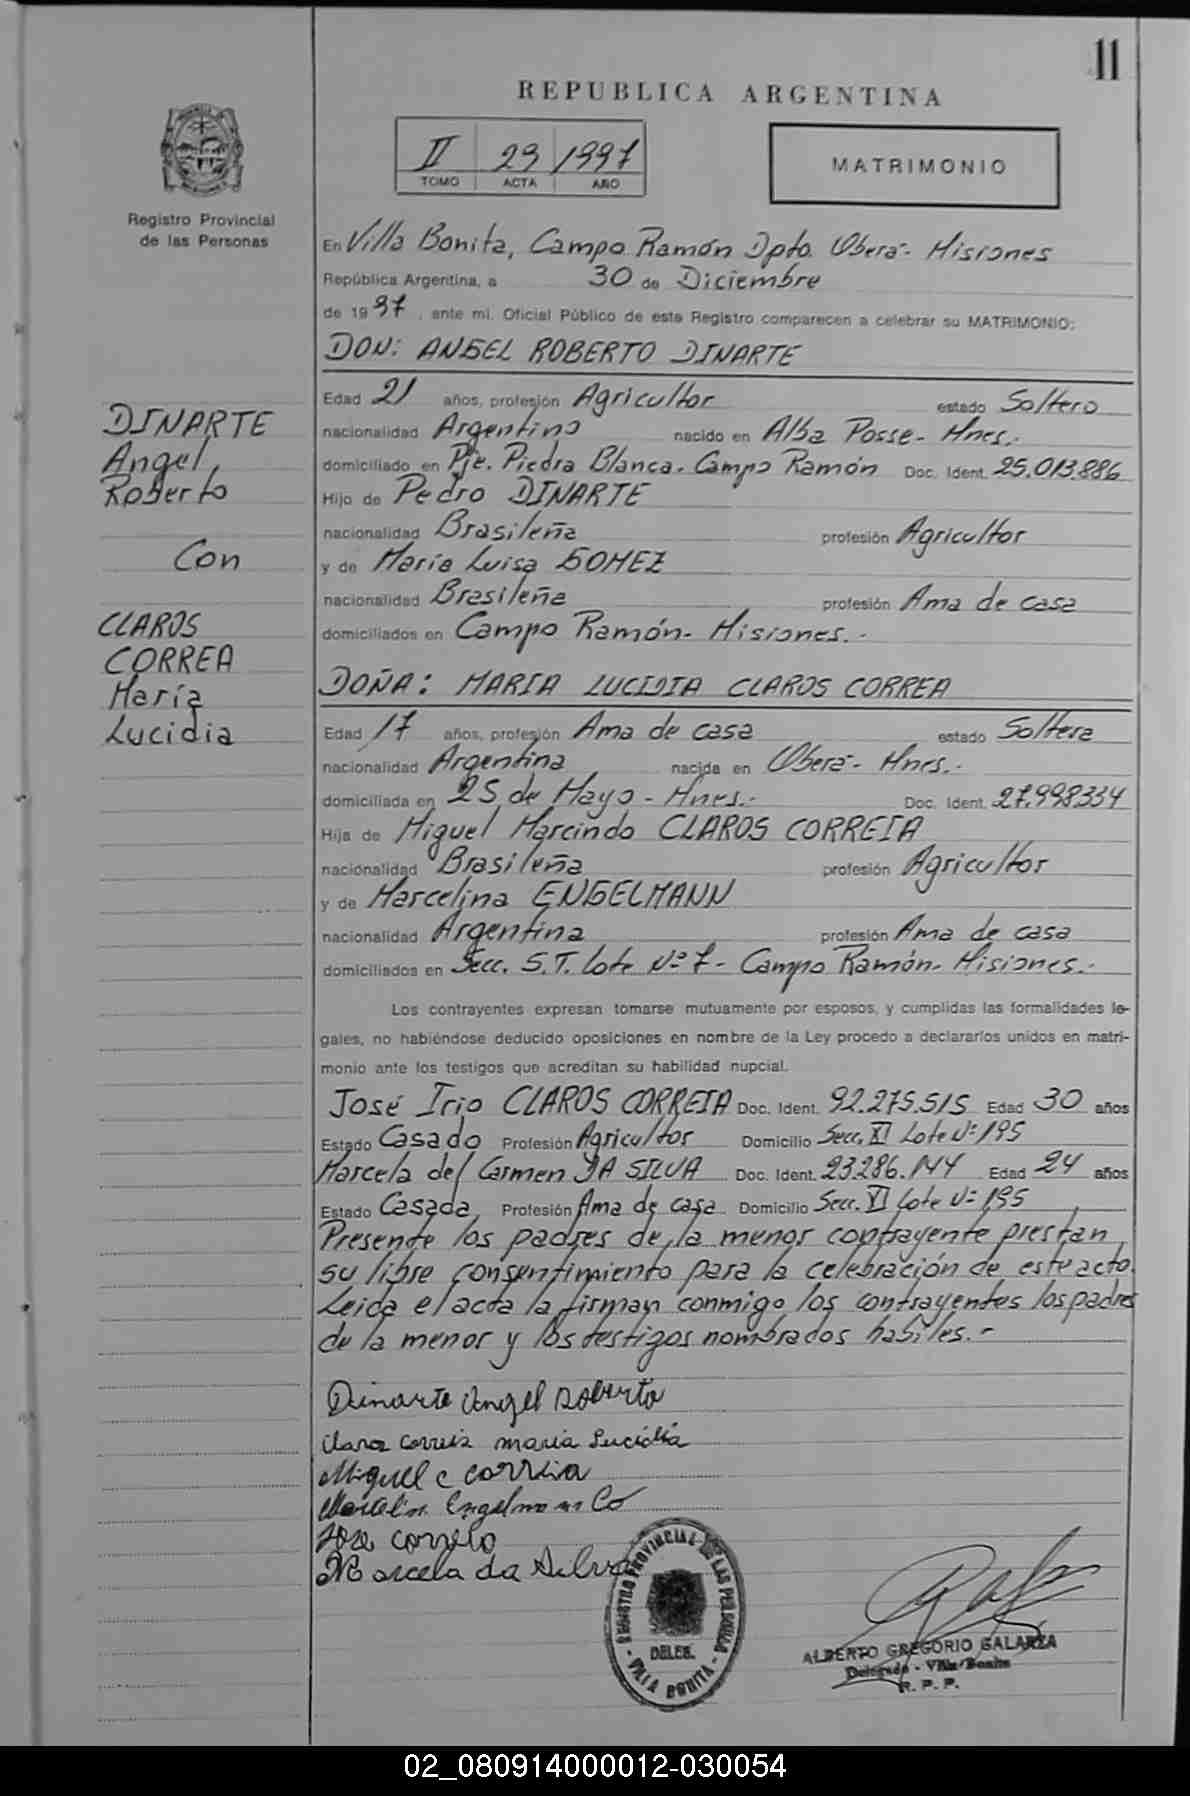 11
REPUBLICA ARGENTINA
II 29 1997
TOMO ACTA AÑO
MATRIMONIO
Registro Provincial
de las Personas
En Villa Bonita, Campo Ramón Dpto. Oberá- Misiones
República Argentina, a 30 de Diciembre
de 1997, ante mí, Oficial Público de este Registro comparecen a celebrar su MATRIMONIO:
DON: ANGEL ROBERTO DINARTE
Edad 21 años, profesión Agricultor estado Soltero
nacionalidad Argentino nacido en Alba Posse- Mnes.-
domiciliado en Pje. Piedra Blanca- Campo Ramón Doc. Ident. 25.013.886
Hijo de Pedro DINARTE
nacionalidad Brasileña profesión Agricultor
y de María Luisa GOMEZ
nacionalidad Brasileña profesión Ama de casa
domiciliados en Campo Ramón- Misiones.-
DINARTE
Angel
Roberto
Con
CLAROS
CORREA
María
Lucidia
DOÑA: MARIA LUCIDIA CLAROS CORREA
Edad 17 años, profesión Ama de casa estado Soltera
nacionalidad Argentina nacida en Oberá- Mnes.-
domiciliada en 25 de Mayo - Mnes.- Doc. Ident. 27.998334
Hija de Miguel Marcindo CLAROS CORREIA
nacionalidad Brasileña profesión Agricultor
y de Marcelina ENGELMANN
nacionalidad Argentina profesión Ama de casa
domiciliados en Secc. S.T. Lote Nº 7- Campo Ramón- Misiones.-
Los contrayentes expresan tomarse mutuamente por esposos, y cumplidas las formalidades le-
gales, no habiéndose deducido oposiciones en nombre de la Ley procedo a declararlos unidos en matri-
monio ante los testigos que acreditan su habilidad nupcial.
José Irio CLAROS CORREIA Doc. Ident. 92.275.515 Edad 30 años
Estado Casado Profesión Agricultor Domicilio Secc. XI Lote Nº 195
Marcela del Carmen DA SILVA Doc. Ident. 23.286.144 Edad 24 años
Estado Casada Profesión Ama de casa Domicilio Secc. XI Lote Nº 195
Presente los padres de la menor contrayente prestan
su libre consentimiento para la celebración de este acto.
Leida el acta la firman conmigo los contrayentes los padres
de la menor y los testigos nombrados habiles.-
Dinarte Angel Roberto
Claros Correia maria Lucidia
Miguel c correia
Marcelina Engelmann Co
Jose correia
Marcela da Silva
REGISTRO PROVINCIAL DE LAS PERSONAS
DELEG.
- VILLA BONITA -
ALBERTO GREGORIO GALARZA
Delegado - Villa Bonita
R. P. P.
02_080914000012-030054